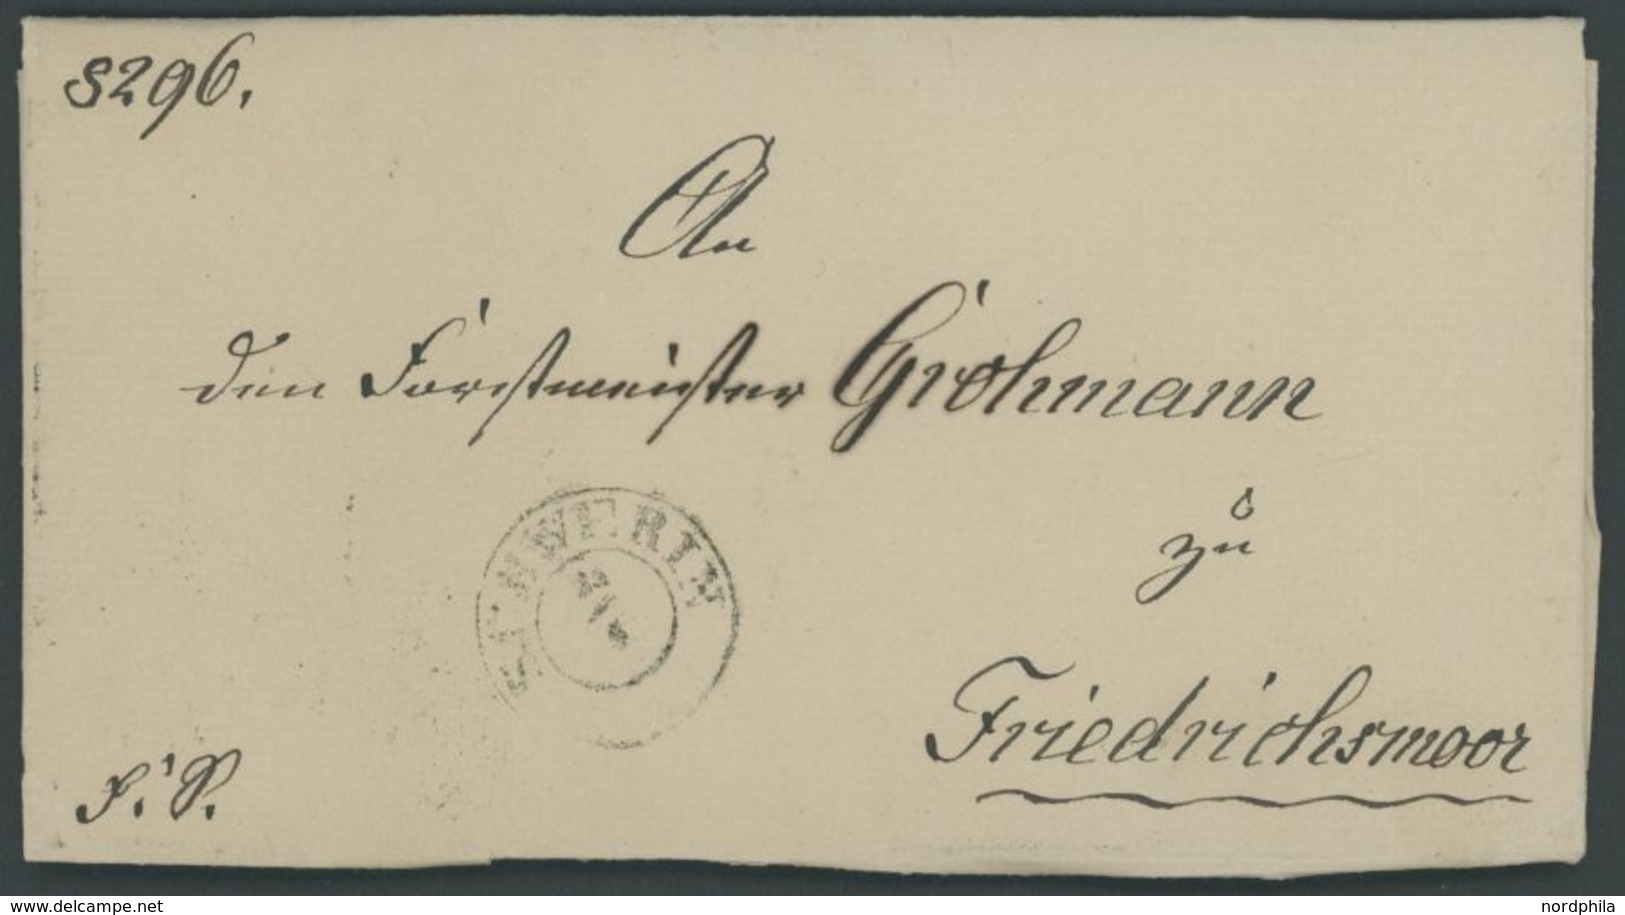 8296.
An
den Forstmeister Grohmann
zu
Friedrichsmoor
SCHWERIN
F. S.
www.delcampe.net
nordphila